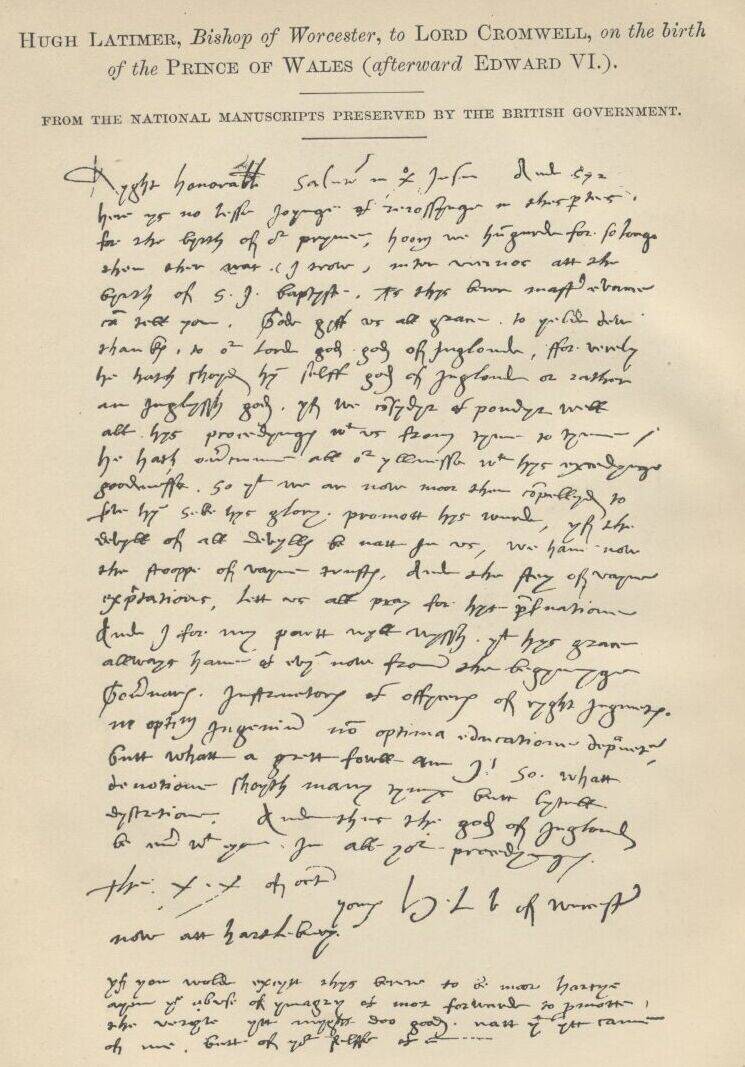 HUGH LATIMER, Bishop of Worcester, to LORD CROMWELL, on the birth
of the PRINCE OF WALES (afterward EDWARD VI.).
FROM THE NATIONAL MANUSCRIPTS PRESERVED BY THE BRITISH GOVERNMENT.
Ryght honorable Salute in Jesu And Syr
here ys no lesse joynge & reiossynge in thes partes
for the byrth of or prynce, hoom we hungurde for so longe
then ther was (I trow) inter vicinos att the
byrth of S. J. baptyst. As thys berer mastr evance
can tell you. Gode gyff us all grace to yelde dew
thanks to or Lord god god of Inglonde, ffor verely
he hath shoyd hym selff god of Inglond or rather
an Inglyssh god. yf we consydyr & pondyr well
all hys procedyngs wt us from tyme to tyme /
he hath overcumme all or yllnesse wt hys excedynge
goodnesse. So yt we ar now moor then compellyd to
serve hym seke hys glory. promott hys wurde, yf the
devyll of all devylls be natt in us, we have now
the stooppe of vayne trusts, And the stey of vayne
expectations, lett us all pray for hys preservatione
And I for my partt wyll wyssh yt hys grace
allways have & evyn now from the begynynge
Governars. Instructors & offycers of ryght jugmente.
ne optimum Ingenium non optima educatione depravetur
butt whatt a grett fowll am I! So whatt
devotione shoyth many tymys butt lytell
dyscretione. And thus the god of Inglond
be ever wt you in all yor procedyngs.
the
now att hartlebury.
yours H. L. b of wurcester
yf you wolde excytt thys berer to be moor hartye
ayen ye abuse of ymagry & mor forwarde to promotte
the veryte ytt myght doo good. natt yt ytt came
of me, butt of yor selffe &c